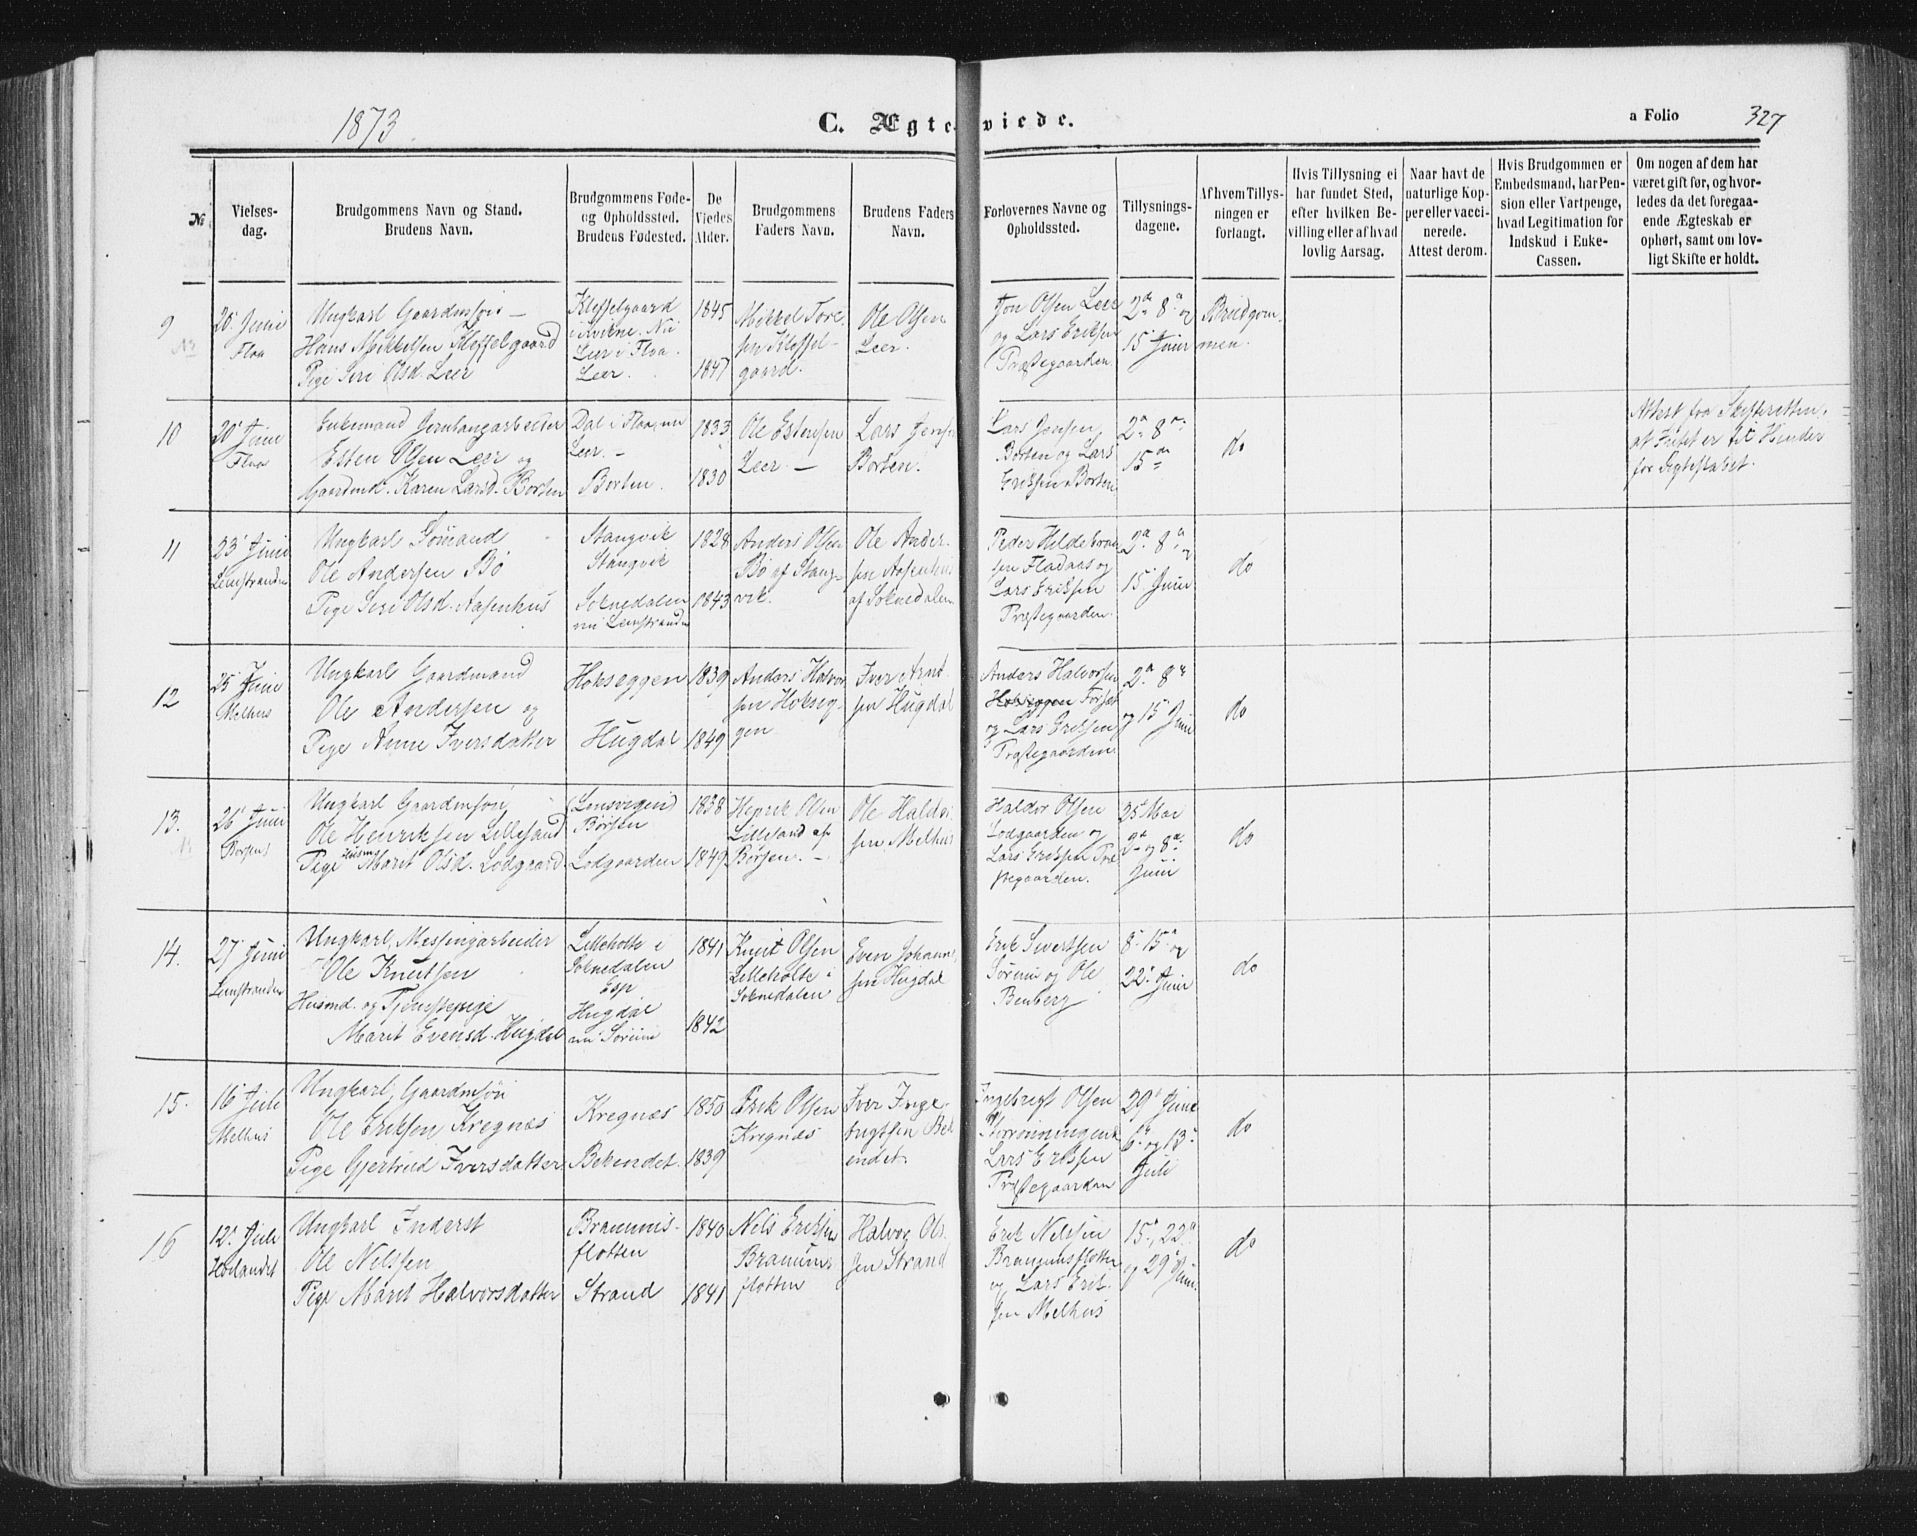 1873
C. Ægteviede.
a Folio
327
№
Vielses-
dag.
Brudgommens Navn og Stand.
Brudens Navn.
Brudgommens Føde-
og Opholdssted.
Brudens Fødested.
De
Viedes
Alder.
Brudgommens
Faders Navn.
Brudens Faders
Navn.
Forlovernes Navne og
Opholdssted.
Tillysnings-
dagene.
Af hvem Tillys-
ningen er
forlangt.
Hvis Tillysning ei
har fundet Sted,
efter hvilken Be-
villing eller af hvad
lovlig Aarsag.
Naar havt de
naturlige Kop-
per eller vacci-
nerede.
Attest derom.
Hvis Brudgommen er
Embedsmand, har Pen-
sion eller Vartpenge,
hvad Legitimation for
Indskud i Enke-
Cassen.
Om nogen af dem har
været gift før, og hvor-
ledes da det foregaa-
ende Ægteskab er
ophørt, samt om lov-
ligt Skifte er holdt.
9
20 Juni
Flaa
Ungkarl Gaardmsøn –
Hans Mikkelsen Kleffelgaard
Pige Seri Olsd. Leer
Kleffelgaard
i Kvikne. Nu
Leer i Flaa.
Leer.
1845
1847
Mikkel Tore-
sen Kleffel-
gaard.
Ole Olsen
Leer.
Jon Olsen Leer
og Lars Eriksen
Præstegaarden.
2den 8de og
15 Juni
Brudgom-
men.
10
20 Juni
Flaa
Enkemand Jernbanearbeider
Esten Olsen Leer og
Gaardmd. Karen Larsd. Borten
Dal i Flaa, nu
Leer. –
Borten.
1833
1830
Ole Estensen
Leer. –
Lars Jensen
Borten.
Lars Jensen
Borten og Lars
Eriksen Borten
2den 8de
15de
do
Attest fra Skifteretten,
at Intet er til Hinder
for Ægteskabet.
11
23 Juni
Leinstranden
Ungkarl Sømand
Ole Andersen Bø
Pige Seri Olsd. Aasenhus
Stangvik
Stangvik
Soknedalen
nu Leinstranden
1828
1843
Anders Olsen
Bø af Stang-
vik.
Ole Ander-
sen Aasenhus
af Soknedalen
Peder Hildebrand-
sen Fladaas og
Lars Eriksen
Præstegaarden.
2de 8de og
15 Juni
do
12
25 Juni
Melhus
Ungkarl Gaardmand
Ole Andersen og
Pige Anne Iversdatter
Hokseggen
Hugdal
1839
1849
Anders Halvor-
sen Hokseg-
gen
Iver Arnt-
sen Hugdal
Anders Halvorsen
Hokseggen Forsæt
og Lars Eriksen
Præstegaarden
2de 8de
og 15 Juni
do
13.
26 Juni
Børsen
Ungkarl Gaardmsøn
Ole Henriksen Lillesand
Husm
Pige Marit Olsd. Lodgaard.
(Lensvigen)
Børsen
Lodgaarden
1838
1849
Henrik Olsen
Lillesand af
Børsen. –
Ole Haldor-
sen Melhus
Haldor Olsen
Lodgaarden og
Lars Eriksen Præ-
stegaarden.
25 Mai
2de og 8de
Juni
do
14.
27 Juni
Leinstranden
Ungkarl, Messingarbeider
Ole Knutsen
Husmd. og Tjenestepige
Marit Evensd. Hugdal
Lilleholte i
Soknedalen
Esp
Hugdal
nu Søreim
1841
1842
Knut Olsen
Lilleholte i
Soknedalen
Even Johann-
sen Hugdal
Erik Sivertsen
Søreim og Ole
Benberg
8 15de og
22 Juni
do
15.
16 Juli
Melhus
Ungkarl, Gaardmsøn
Ole Eriksen Kregnæs
Pige Gjertrud Iversdatter
Kregnæs
Bekendet.
1850
1839
Erik Olsen
Kregnæs
Iver Inge-
brigtsen Bek-
endet.
Ingebrigt Olsen
og
Lars Eriksen
Præstegaarden
29 Juni
6te og 13
Juli
do
16
12 Juli
Hølandet
Ungkarl Inderst
Ole Nelssen
Pige Marit Halvorsdatter
Bramms-
flotten
Strand
1840
1841
Nels Eriksen
Bramms-
flotten
Halvor Ol-
sen Strand
Erik Nelssen
Brammsflotten
og Lars Erik-
sen Melhus
15, 22
og 29 Juni
do